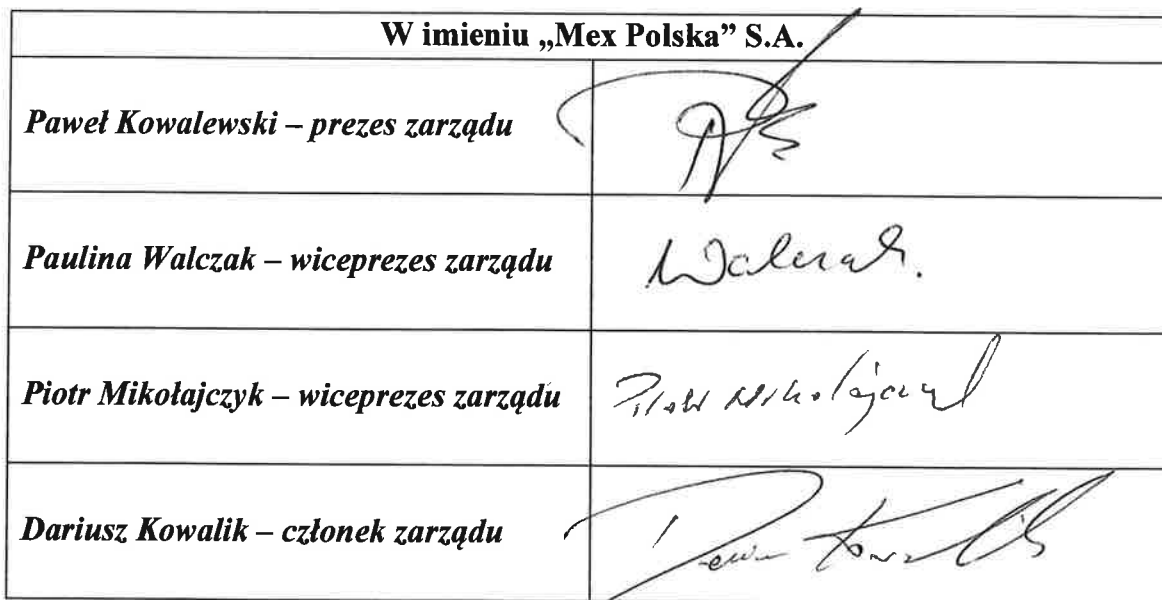 W imieniu „Mex Polska” S.A.
Paweł Kowalewski – prezes zarządu
Paulina Walczak – wiceprezes zarządu
Walczak.
Piotr Mikołajczyk – wiceprezes zarządu
Piotr Mikołajczyk
Dariusz Kowalik – członek zarządu